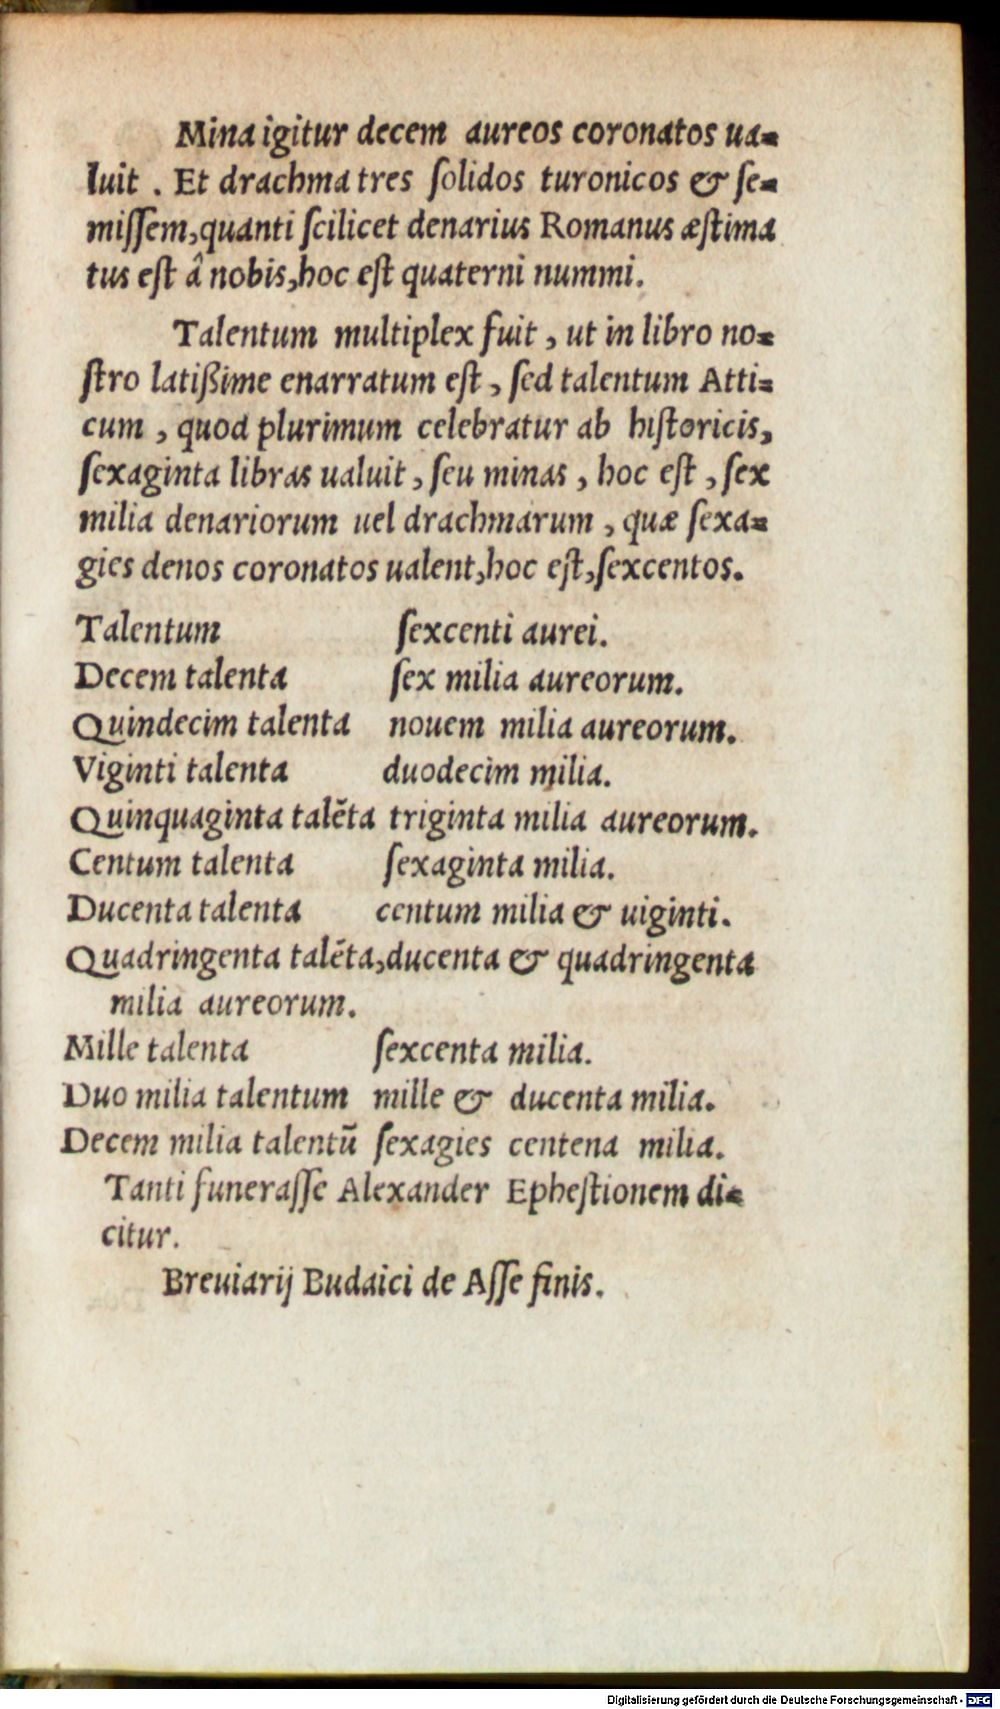 Mina igitur decem aureos coronatos ua-
luit . Et drachma tres ſolidos turonicos & ſe-
miſſem, quanti ſcilicet denarius Romanus æſtima
tus eſt â nobis, hoc eſt quaterni nummi.
Talentum multiplex fuit , ut in libro no-
ſtro latißime enarratum eſt , ſed talentum Atti-
cum , quod plurimum celebratur ab hiſtoricis,
ſexaginta libras ualuit , ſeu minas , hoc eſt , ſex
milia denariorum uel drachmarum , quæ ſexa-
gies denos coronatos ualent, hoc eſt, ſexcentos.
Talentum ſexcenti aurei.
Decem talenta ſex milia aureorum.
Quindecim talenta nouem milia aureorum.
Viginti talenta duodecim milia.
Quinquaginta talẽta triginta milia aureorum.
Centum talenta ſexaginta milia.
Ducenta talenta centum milia & uiginti.
Quadringenta talẽta, ducenta & quadringenta
milia aureorum.
Mille talenta ſexcenta milia.
Duo milia talentum mille & ducenta milia.
Decem milia talentũ ſexagies centena milia.
Tanti funeraſſe Alexander Epheſtionem di-
citur.
Breuiarij Budaici de Aſſe finis.
Digitalisierung gefördert durch die Deutsche Forschungsgemeinschaft - DFG